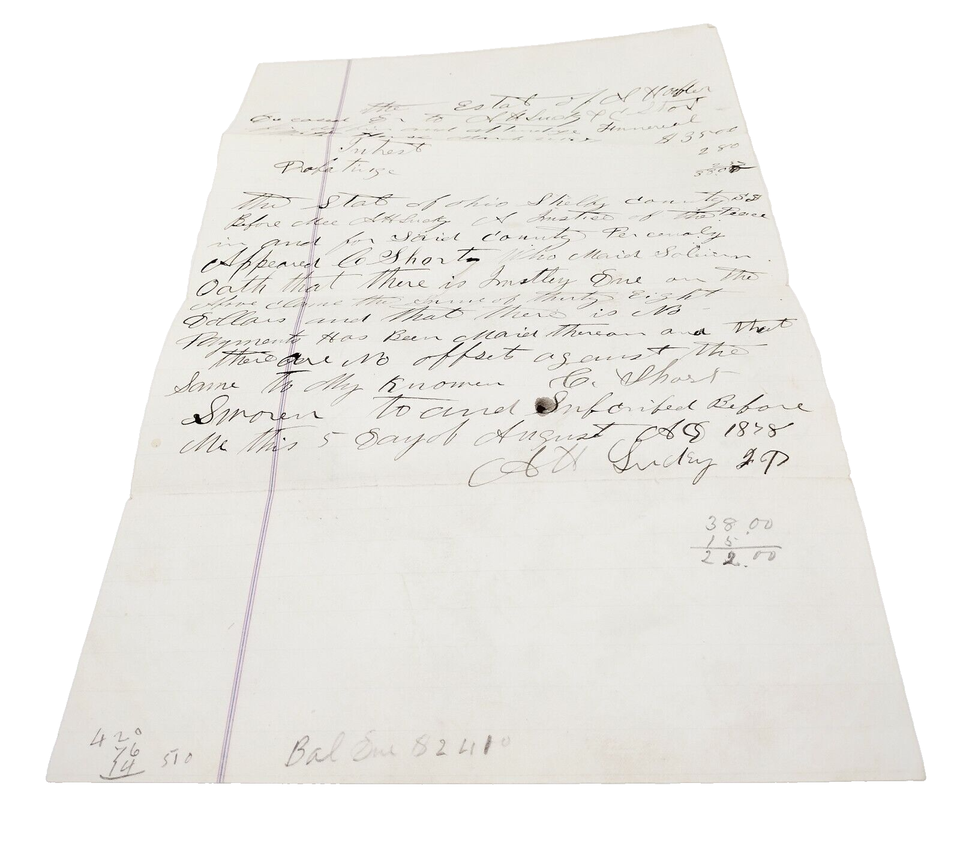 the Estat of
to A H Lucky &
and Funeral
Interst $ 35.00
280
38.00
the Stat of ohio Shelby County SS
Before Mee A H Lucky A Justice of the Peace
in and for Said County Persouly
Appeared C. Short Who Maid Solium
Oath that there is Justley Due on the
Above Claime the Sume of thirty Eight
Dollars and that there is No
Payments Has Been Maid thereon and that
there are No offset against the
Same to My Knowen C. Short
Sworen to and Subscribed Before
Me this 5 Day of August AD 1878
A H Lucky JP
38.00
15
22.00
420
76
14
510
Bal Due